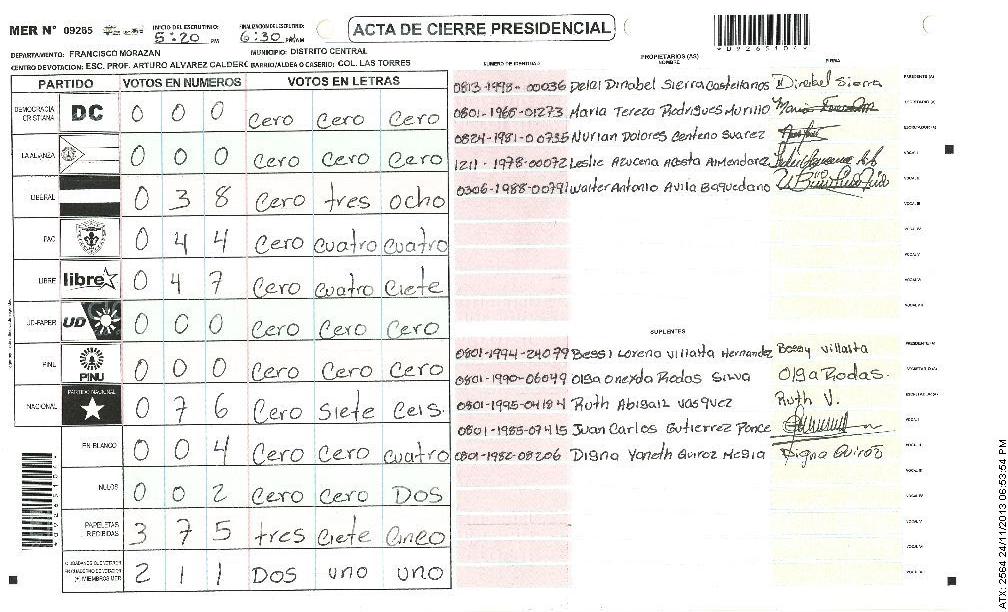 MER N° 09265 INICIO DEL ESCRUTINIO: 5:20 PM FINALIZACION DEL ESCRUTINIO: 6:30 PM ACTA DE CIERRE PRESIDENCIAL
DEPARTAMENTO: FRANCISCO MORAZAN MUNICIPIO: DISTRITO CENTRAL
CENTRO DE VOTACION: ESC. PROF. ARTURO ALVAREZ CALDERC BARRIO/ALDEA O CASERIO: COL. LAS TORRES
PARTIDO VOTOS EN NUMEROS VOTOS EN LETRAS
DEMOCRACIA CRISTIANA DC 0 0 0 Cero Cero Cero
LA ALIANZA 0 0 0 Cero Cero Cero
LIBERAL 0 3 8 Cero tres ocho
PAC 0 4 4 Cero cuatro cuatro
LIBRE libre 0 4 7 Cero cuatro Ciete
UD-FAPER UD 0 0 0 Cero Cero Cero
PINU PINU 0 0 0 Cero Cero Cero
NACIONAL PARTIDO NACIONAL 0 7 6 Cero Siete Ceis.
EN BLANCO 0 0 4 Cero Cero cuatro
NULOS 0 0 2 Cero Cero Dos
PAPELETAS RECIBIDAS 3 7 5 tres Ciete Cinco
2 1 1 Dos uno uno
NUMERO DE IDENTIDAD PROPIETARIOS (AS) NOMBRE FIRMA
0813-1998-00036 Dirabel Sierra Castellanos Dirabel Sierra PRESIDENTE (A)
0801-1965-01273 Maria Tereza Rodrigues Murillo SECRETARIO (A)
0824-1981-00735 Nurian Dolores Centeno Suarez ESCRUTADOR (A)
1211-1978-00072 Leslie Azucena Acosta Almendarez VOCAL I
0306-1988-00791 Walter Antonio Avila Baquedano VOCAL II
VOCAL III
VOCAL IV
VOCAL V
VOCAL VI
VOCAL VII
SUPLENTES
0801-1994-24079 Bessi Lorena Villalta Hernandez Bessy Villalta PRESIDENTE (A)
0801-1990-06049 Olga Oneyda Rodas Silva Olga Rodas. SECRETARIO (A)
0801-1995-04184 Ruth Abigail Vasquez Ruth V. ESCRUTADOR (A)
0801-1985-07415 Juan Carlos Gutierrez Ponce VOCAL I
0801-1982-08206 Digna Yaneth Quiroz Mejia Digna Quiroz VOCAL II
VOCAL III
VOCAL IV
VOCAL V
VOCAL VI
VOCAL VII
ATX: 2564 24/11/2013 06:53:54 PM